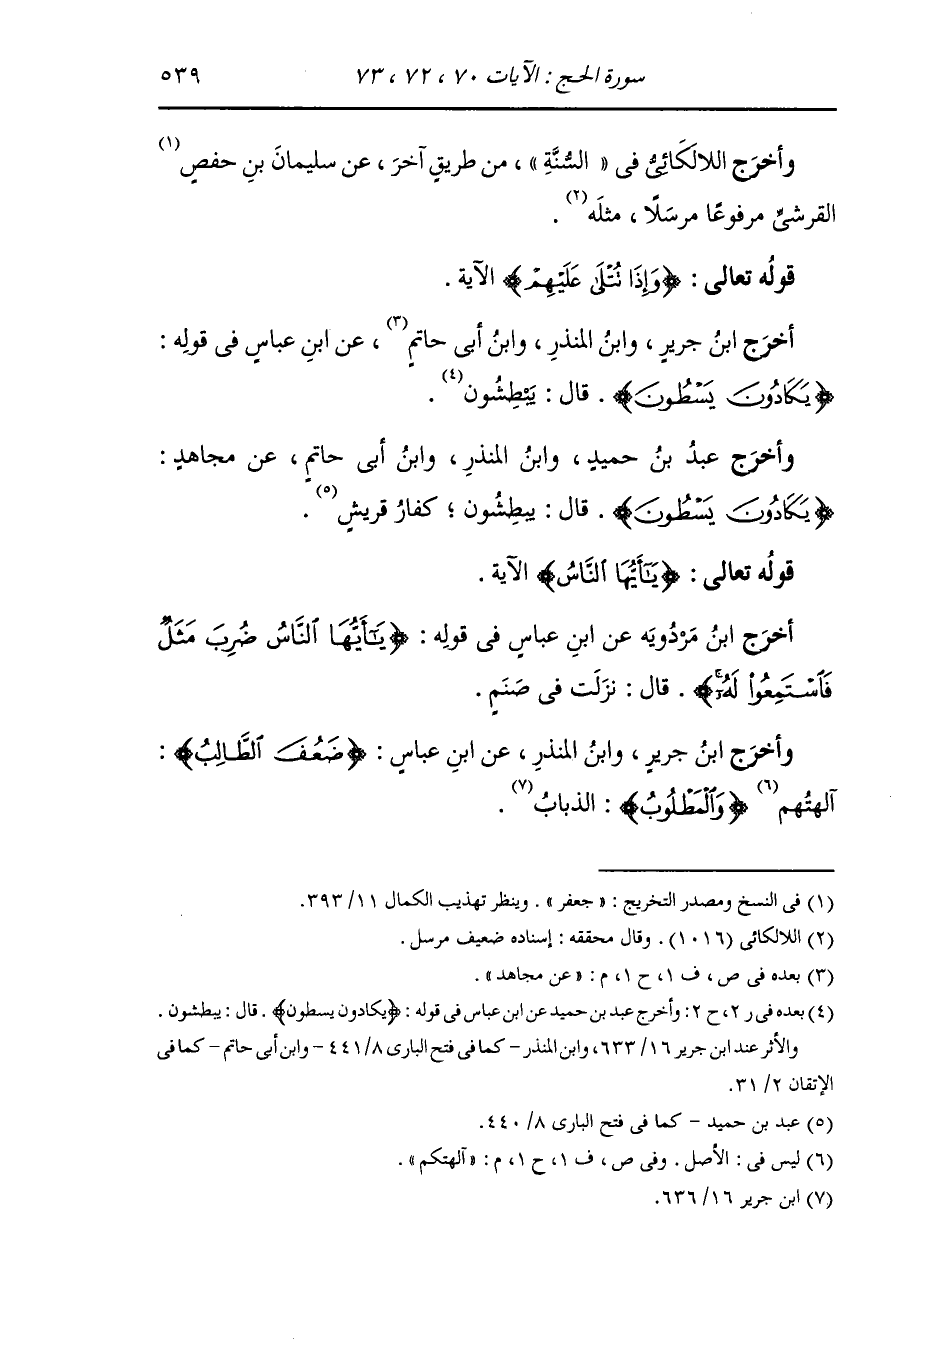 سورة الحج : الآيات ٧٠ ، ٧٢ ، ٧٣ ٥٣٩
وأخرَج اللالكَائِىُّ فى « السُّنَّةِ » ، من طريقٍ آخرَ ، عن سليمانَ بنِ حفصٍ(١)
القرشىِّ مرفوعًا مرسَلًا ، مثلَه(٢) .
قولُه تعالى : ﴿وَإِذَا نُتْلَىٰ عَلَيْهِمْ﴾ الآية .
أخرَج ابنُ جريرٍ ، وابنُ المنذرِ ، وابنُ أبى حاتمٍ(٣) ، عن ابنِ عباسٍ فى قولِه :
﴿يَكَادُونَ يَسْطُونَ﴾ . قال : يَبْطِشُون(٤) .
وأخرَج عبدُ بنُ حميدٍ ، وابنُ المنذرِ ، وابنُ أبى حاتمٍ ، عن مجاهدٍ :
﴿يَكَادُونَ يَسْطُونَ﴾ . قال : يبطِشُون ؛ كفارُ قريشٍ(٥) .
قولُه تعالى : ﴿يَـٰٓأَيُّهَا ٱلنَّاسُ﴾ الآية .
أخرَج ابنُ مَرْدُويَه عن ابنِ عباسٍ فى قولِه : ﴿يَـٰٓأَيُّهَا ٱلنَّاسُ ضُرِبَ مَثَلٌ
فَٱسْتَمِعُوا۟ لَهُۥٓ﴾ . قال : نزَلَت فى صَنَمٍ .
وأخرَج ابنُ جريرٍ ، وابنُ المنذرِ ، عن ابنِ عباسٍ : ﴿ضَعُفَ ٱلطَّالِبُ﴾ :
آلهتُهم(٦) ﴿وَٱلْمَطْلُوبُ﴾ : الذبابُ(٧) .
(١) فى النسخ ومصدر التخريج : « جعفر » . وينظر تهذيب الكمال ١١/ ٣٩٣.
(٢) اللالكائى (١٠١٦) . وقال محققه : إسناده ضعيف مرسل .
(٣) بعده فى ص ، ف ١، ح ١، م : « عن مجاهد » .
(٤) بعده فى ر ٢، ح ٢: وأخرج عبد بن حميد عن ابن عباس فى قوله : ﴿يكادون يسطون﴾ . قال : يبطشون .
والأثر عند ابن جرير ١٦/ ٦٣٣، وابن المنذر - كما فى فتح البارى ٨/ ٤٤١ - وابن أبى حاتم - كما فى
الإتقان ٢/ ٣١.
(٥) عبد بن حميد - كما فى فتح البارى ٨/ ٤٤٠.
(٦) ليس فى : الأصل . وفى ص ، ف ١، ح ١، م : « آلهتكم » .
(٧) ابن جرير ١٦/ ٦٣٦.